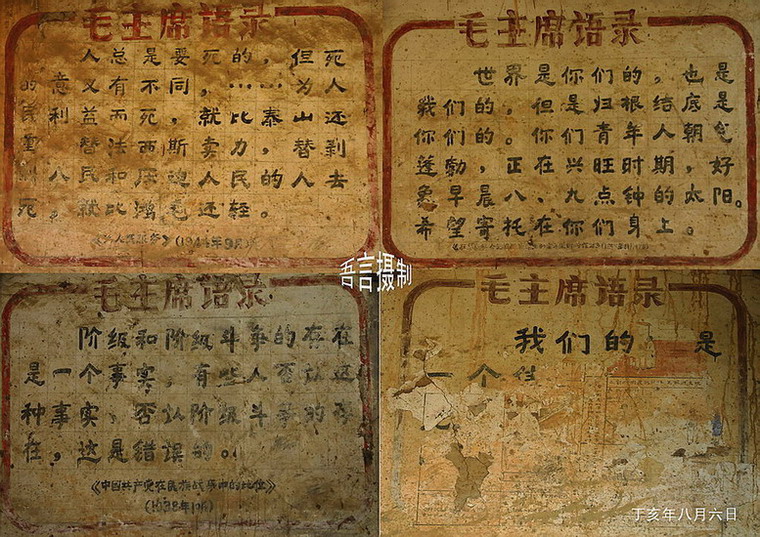 毛主席语录
人总是要死的，但死
的意义有不同，……为人
民利益而死，就比泰山还
重替法西斯卖力，替剥
削人民和压迫人民的人去
死，就比鸿毛还轻。
《为人民服务》(1944年9月
毛主席语录
世界是你们的，也是
我们的，但是归根结底是
你们的。你们青年人朝气
蓬勃，正在兴旺时期，好
象早晨八、九点钟的太阳。
希望寄托在你们身上。
吾言摄制
毛主席语录
阶级和阶级斗争的存在
是一个事实，有些人否认这
种事实，否认阶级斗争的存
在，这是错误的。
《中国共产党在民族战争中的地位》
(1938年10月)
毛主席语录
我们的 是
一个
丁亥年八月六日